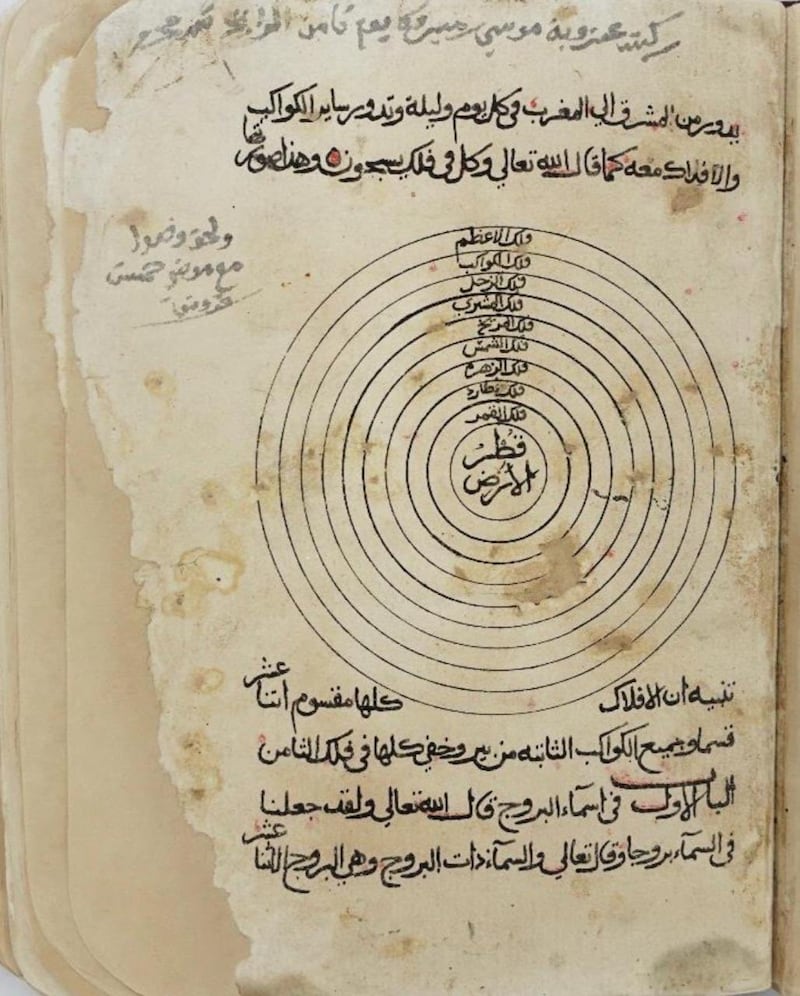 يدور من المشرق الي المغرب في كل يوم وليلة وتدور ساير الكواكب
والافلاك معه كما قال الله تعالي وكل في فلك يسبحون وهذا صورتها
فلك الاعظم
فلك الكواكب
فلك الزحل
فلك المشتري
فلك المريخ
فلك الشمس
فلك الزهره
فلك عطارد
فلك القمر
قطر
الأرض
تنبيه ان الافلاك كلها مقسوم اثنا عشر
قسما وجميع الكواكب الثابته من بير وخفي كلها في فلك الثامن
الباب الاول في اسماء البروج قال الله تعالي ولقد جعلنا
في السمآء بروجا وقال تعالي والسمآء ذات البروج وهي البروج اثنا عشر